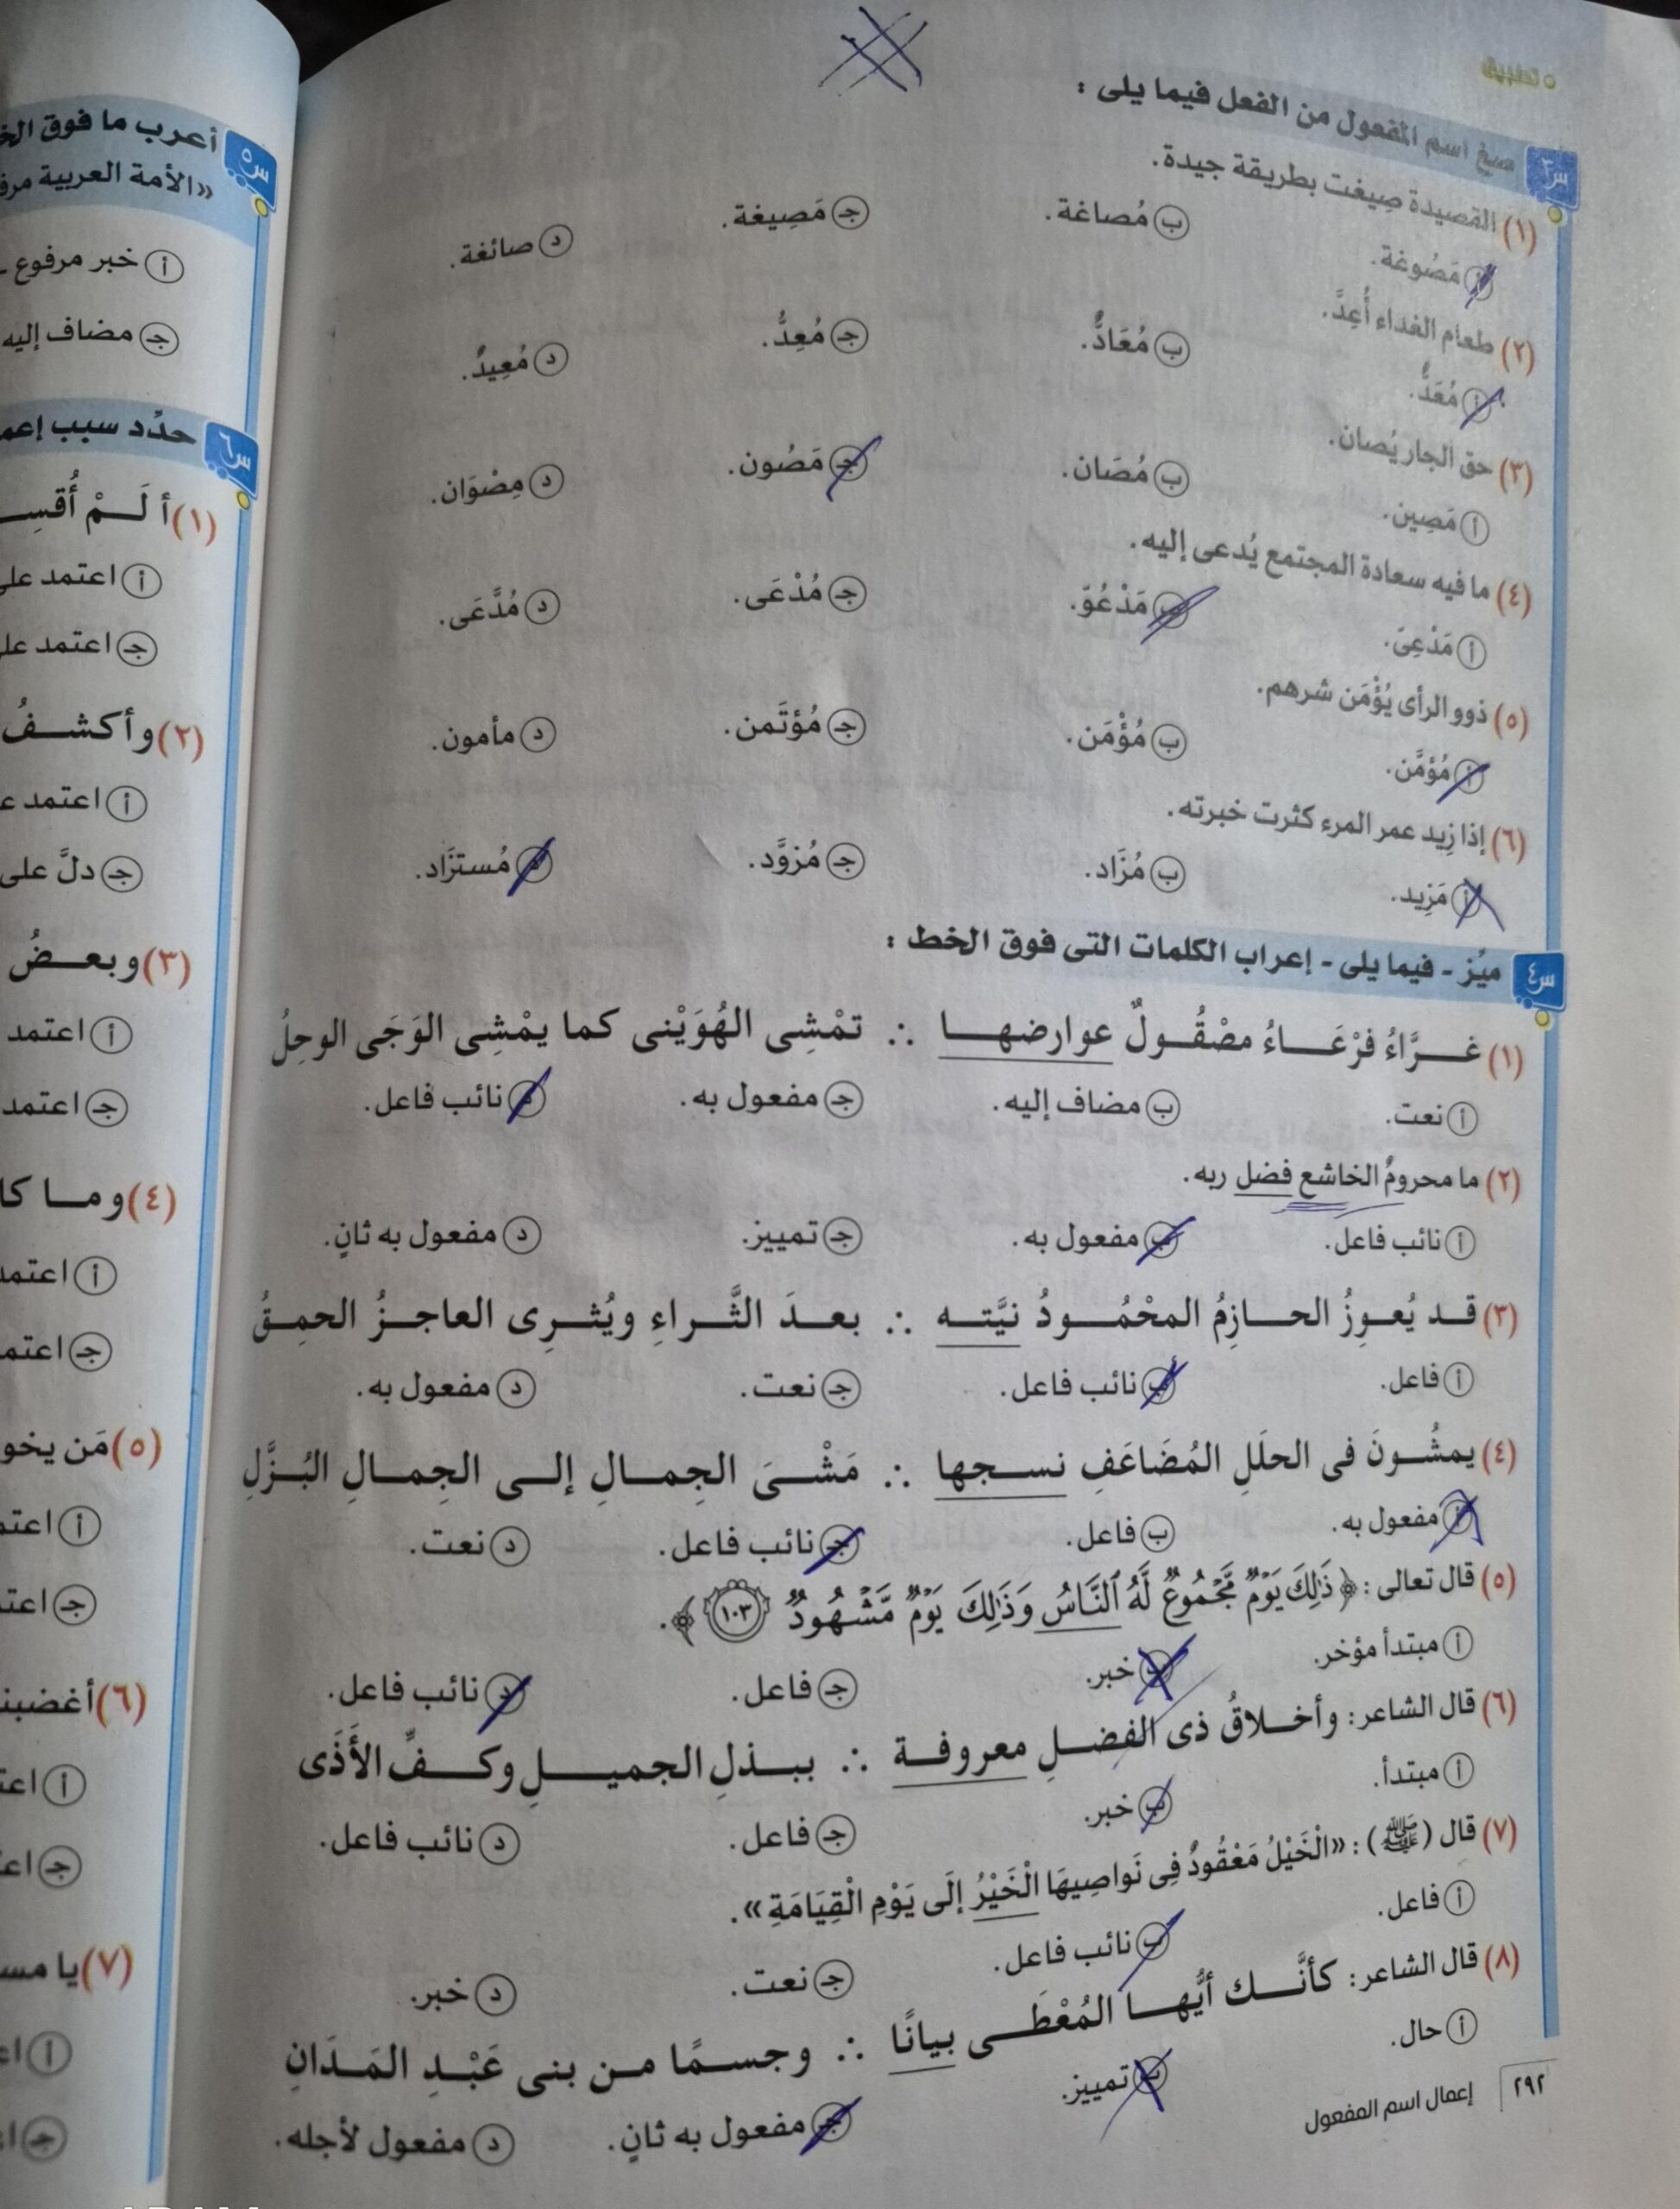 تطبيق
س٣ صغ اسم المفعول من الفعل فيما يلى :
(١) القصيدة صِيغت بطريقة جيدة.
أ مَصُوغة. ب مُصاغة. جـ مَصِيغة. د صائغة.
(٢) طعام الغداء أُعِدَّ.
أ مُعَدٌّ. ب مُعَادٌّ. جـ مُعِدٌّ. د مُعِيدٌ.
(٣) حق الجار يُصان.
أ مَصِين. ب مُصَان. جـ مَصُون. د مِصْوَان.
(٤) ما فيه سعادة المجتمع يُدعى إليه.
أ مَدْعِىّ. ب مَدْعُوّ. جـ مُدْعَى. د مُدَّعَى.
(٥) ذوو الرأى يُؤْمَن شرهم.
أ مُؤمَّن. ب مُؤْمَن. جـ مُؤتَمن. د مأمون.
(٦) إذا زِيد عمر المرء كثرت خبرته.
أ مَزِيد. ب مُزَاد. جـ مُزوَّد. د مُستزَاد.
س٤ ميّز - فيما يلى - إعراب الكلمات التى فوق الخط :
(١) غـــرَّاءُ فرْعَـــاءُ مصْقُــولٌ عوارضهـــا ∴ تمْشِى الهُوَيْنى كما يمْشِى الوَجَى الوحِلُ
أ نعت. ب مضاف إليه. جـ مفعول به. د نائب فاعل.
(٢) ما محرومٌ الخاشع فضل ربه.
أ نائب فاعل. ب مفعول به. جـ تمييز. د مفعول به ثانٍ.
(٣) قــد يُعــوِزُ الحـــازِمُ المحْمُــودُ نيَّتــه ∴ بعــدَ الثَّــراءِ ويُثــرِى العاجــزُ الحمِــقُ
أ فاعل. ب نائب فاعل. جـ نعت. د مفعول به.
(٤) يمشُــونَ فى الحلَلِ المُضَاعَفِ نســجها ∴ مَشْــىَ الجِمــالِ إلــى الجِمــالِ البُــزَّلِ
أ مفعول به. ب فاعل. جـ نائب فاعل. د نعت.
(٥) قال تعالى : ﴿ ذَٰلِكَ يَوْمٌ مَّجْمُوعٌ لَّهُ ٱلنَّاسُ وَذَٰلِكَ يَوْمٌ مَّشْهُودٌ ١٠٣ ﴾.
أ مبتدأ مؤخر. ب خبر. جـ فاعل. د نائب فاعل.
(٦) قال الشاعر : وأخــلاقُ ذى الفضــلِ معروفــة ∴ ببــذلِ الجميــــلِ وكــفِّ الأَذَى
أ مبتدأ. ب خبر. جـ فاعل. د نائب فاعل.
(٧) قال (ﷺ) : «الْخَيْلُ مَعْقُودٌ فِى نَواصِيهَا الْخَيْرُ إلَى يَوْمِ الْقِيَامَةِ».
أ فاعل. ب نائب فاعل. جـ نعت. د خبر.
(٨) قال الشاعر : كأنَّــك أيُّهــا المُعْطَــى بيانًا ∴ وجســمًا مــن بنى عَبْــدِ المَــدَانِ
أ حال. ب تمييز. جـ مفعول به ثانٍ. د مفعول لأجله.
٢٩٢ إعمال اسم المفعول
س٥ أعرب ما فوق
«الأمة العربية
أ خبر مرفوع
جـ مضاف إليه
س٦ حدِّد سبب
(١) أ لَــمْ
أ اعتمد
جـ اعتمد
(٢) وأكشــفُ
أ اعتمد
جـ دلَّ على
(٣) وبعــضُ
أ اعتمد
جـ اعتمد
(٤) ومــا
أ
جـ
(٥) مَن
أ
جـ
(٦)
أ
جـ
(٧) يا
أ
جـ